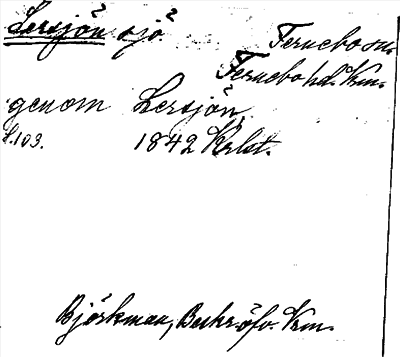 Lersjön sjö Fernebo sn.
Fernebo hd. Vrm.
genom Lersjön,
s. 109. 1842 Krlst.
Björkman, Beskr. öfv. Vrm.